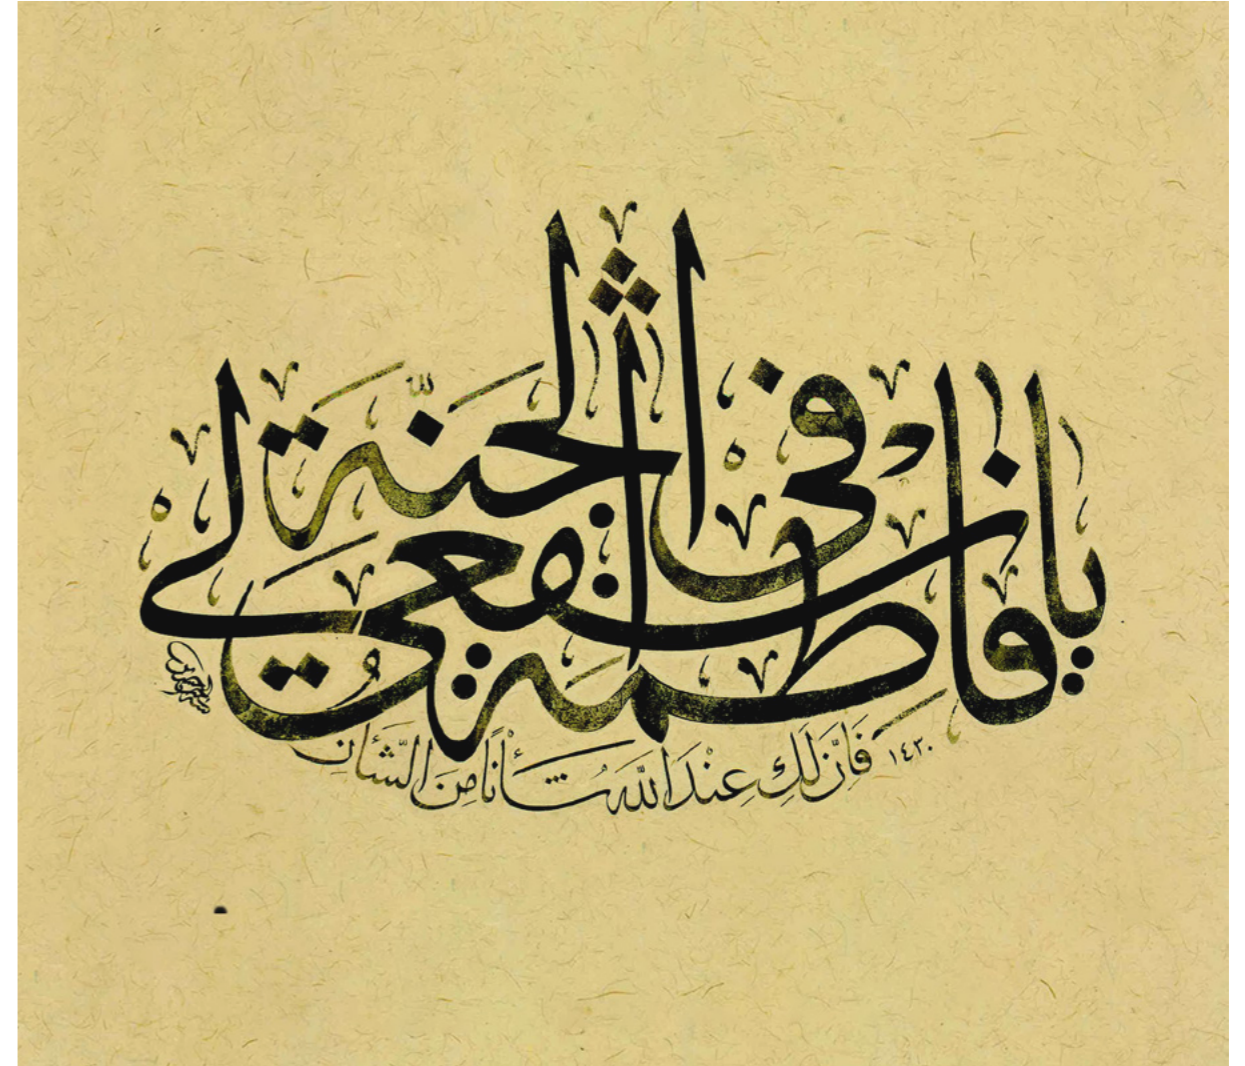 يا فاطمة اشفعي لي في الجنة
فَاِنَّ لَكِ عِنْدَ اللّٰهِ شَأْنًا مِنَ الشَّأْنِ ١٤٣٠